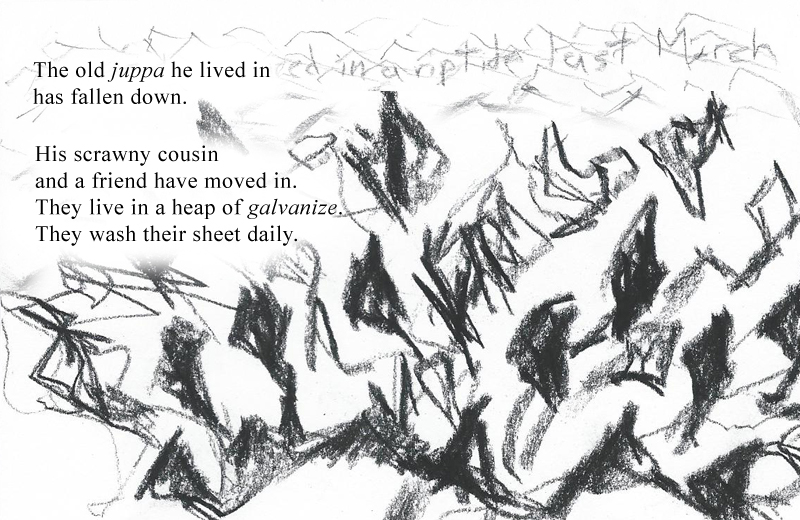 ed in a riptide last March
The old juppa he lived in
has fallen down.
His scrawny cousin
and a friend have moved in.
They live in a heap of galvanize.
They wash their sheet daily.